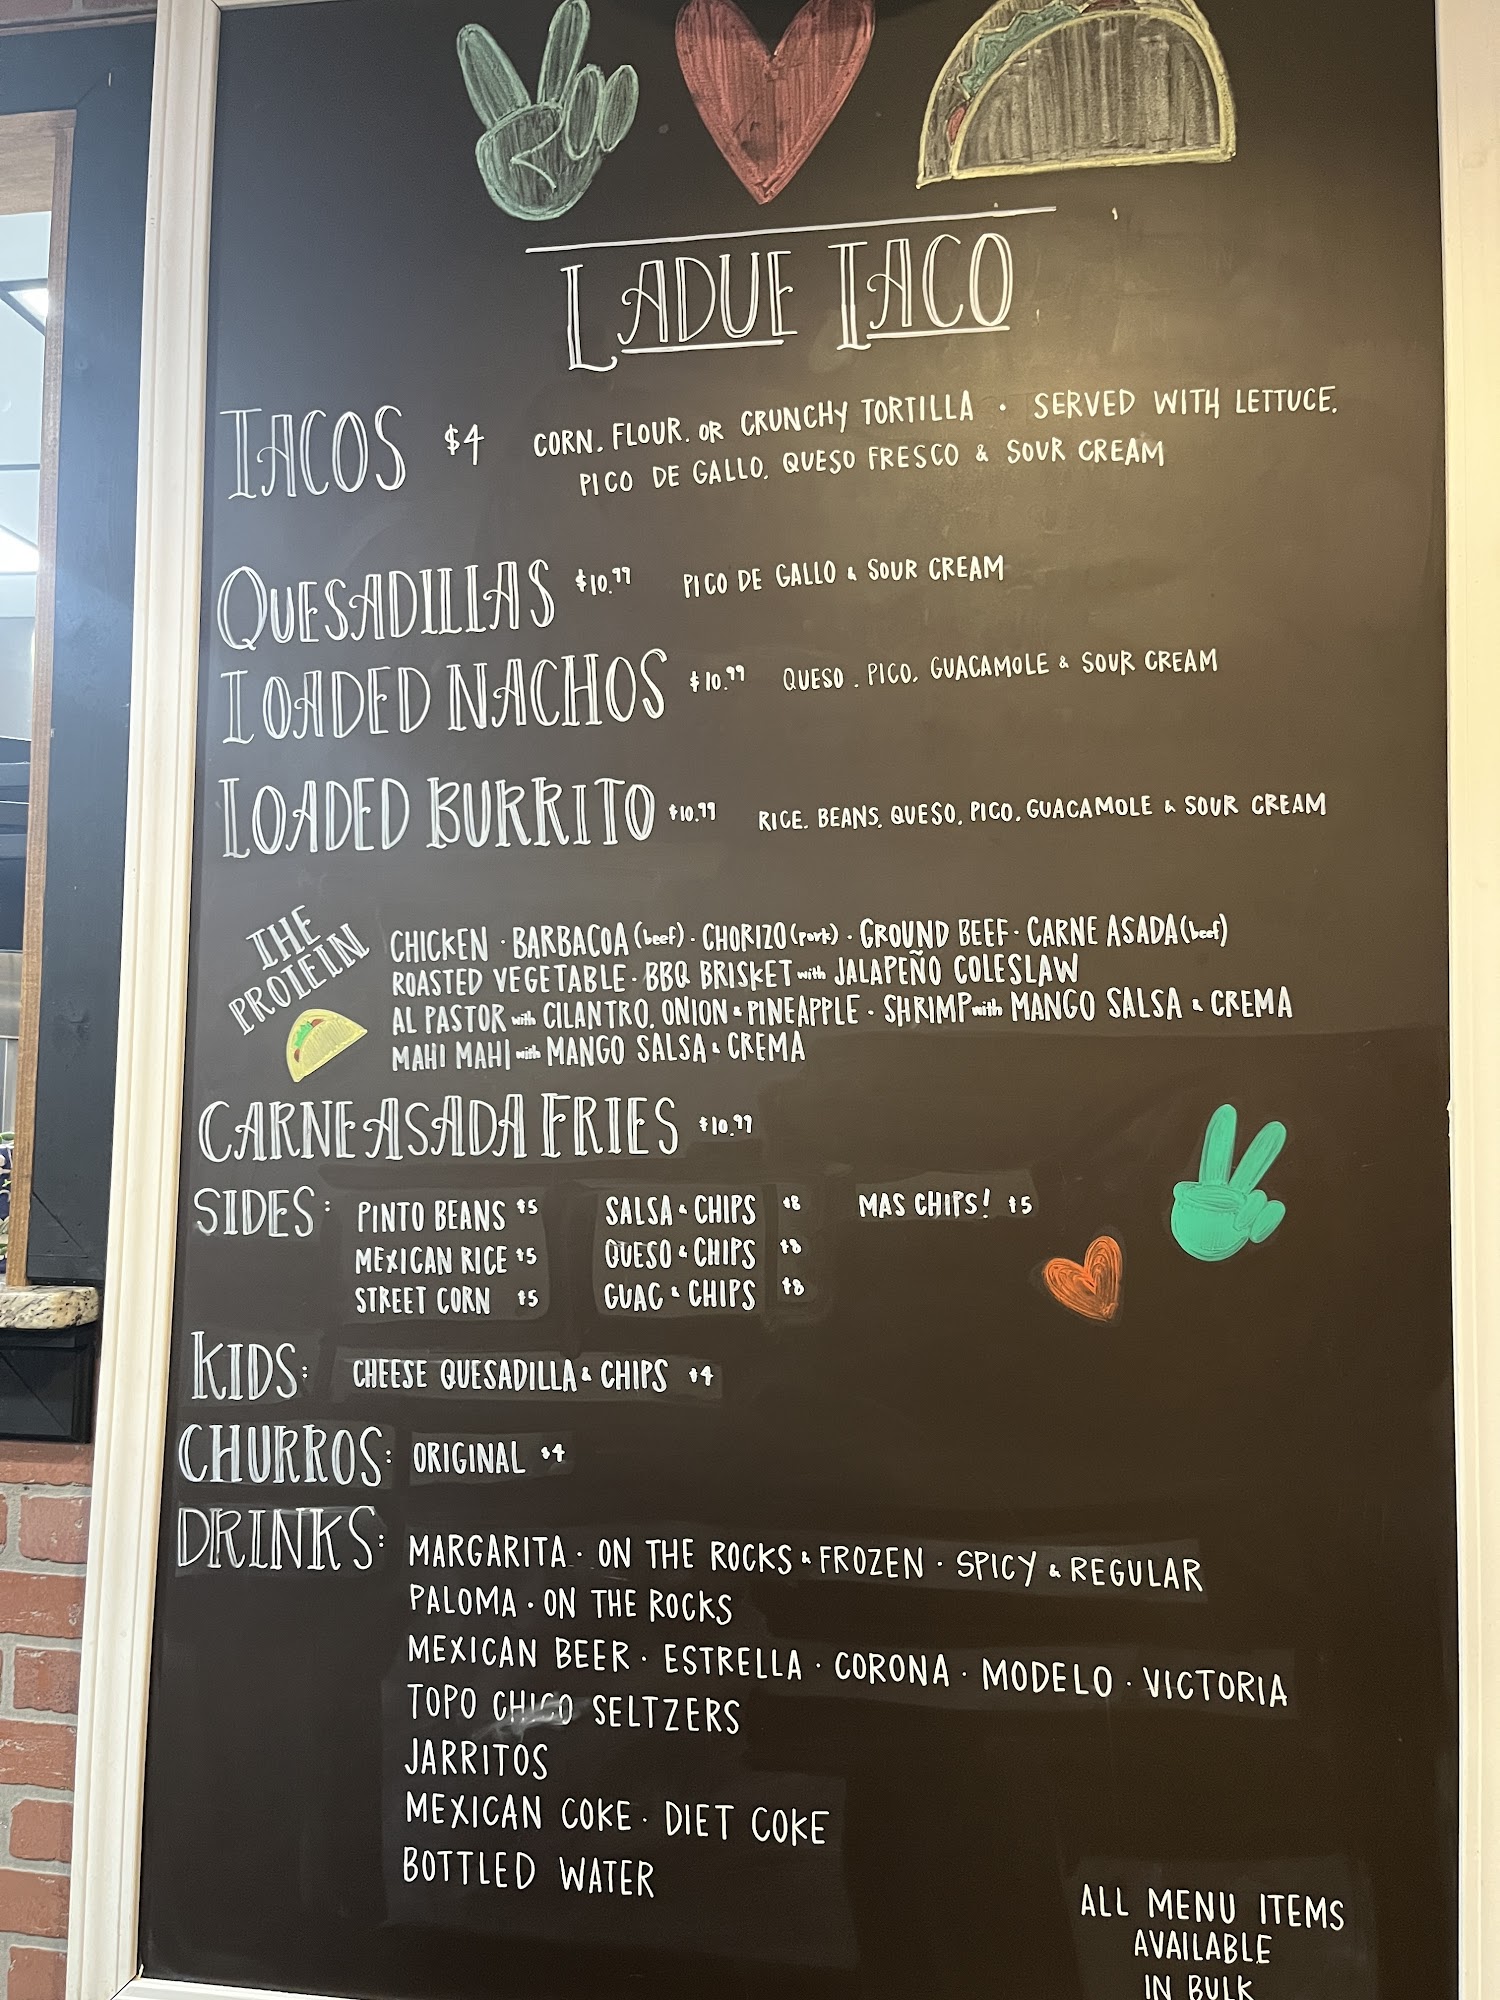 LADUE TACO
TACOS $4 CORN, FLOUR, OR CRUNCHY TORTILLA · SERVED WITH LETTUCE,
PICO DE GALLO, QUESO FRESCO & SOUR CREAM
QUESADILLAS $10.99 PICO DE GALLO & SOUR CREAM
LOADED NACHOS $10.99 QUESO, PICO, GUACAMOLE & SOUR CREAM
LOADED BURRITO $10.99 RICE, BEANS, QUESO, PICO, GUACAMOLE & SOUR CREAM
THE
PROTEIN
CHICKEN · BARBACOA (beef) · CHORIZO (pork) · GROUND BEEF · CARNE ASADA (beef)
ROASTED VEGETABLE · BBQ BRISKET with JALAPEÑO COLESLAW
AL PASTOR with CILANTRO, ONION & PINEAPPLE · SHRIMP with MANGO SALSA & CREMA
MAHI MAHI with MANGO SALSA & CREMA
CARNE ASADA FRIES $10.99
SIDES: PINTO BEANS $5 SALSA & CHIPS $8 MAS CHIPS! $5
MEXICAN RICE $5 QUESO & CHIPS $8
STREET CORN $5 GUAC & CHIPS $8
KIDS: CHEESE QUESADILLA & CHIPS $4
CHURROS: ORIGINAL $4
DRINKS: MARGARITA · ON THE ROCKS & FROZEN · SPICY & REGULAR
PALOMA · ON THE ROCKS
MEXICAN BEER · ESTRELLA · CORONA · MODELO · VICTORIA
TOPO CHICO SELTZERS
JARRITOS
MEXICAN COKE · DIET COKE
BOTTLED WATER
ALL MENU ITEMS
AVAILABLE
IN BULK